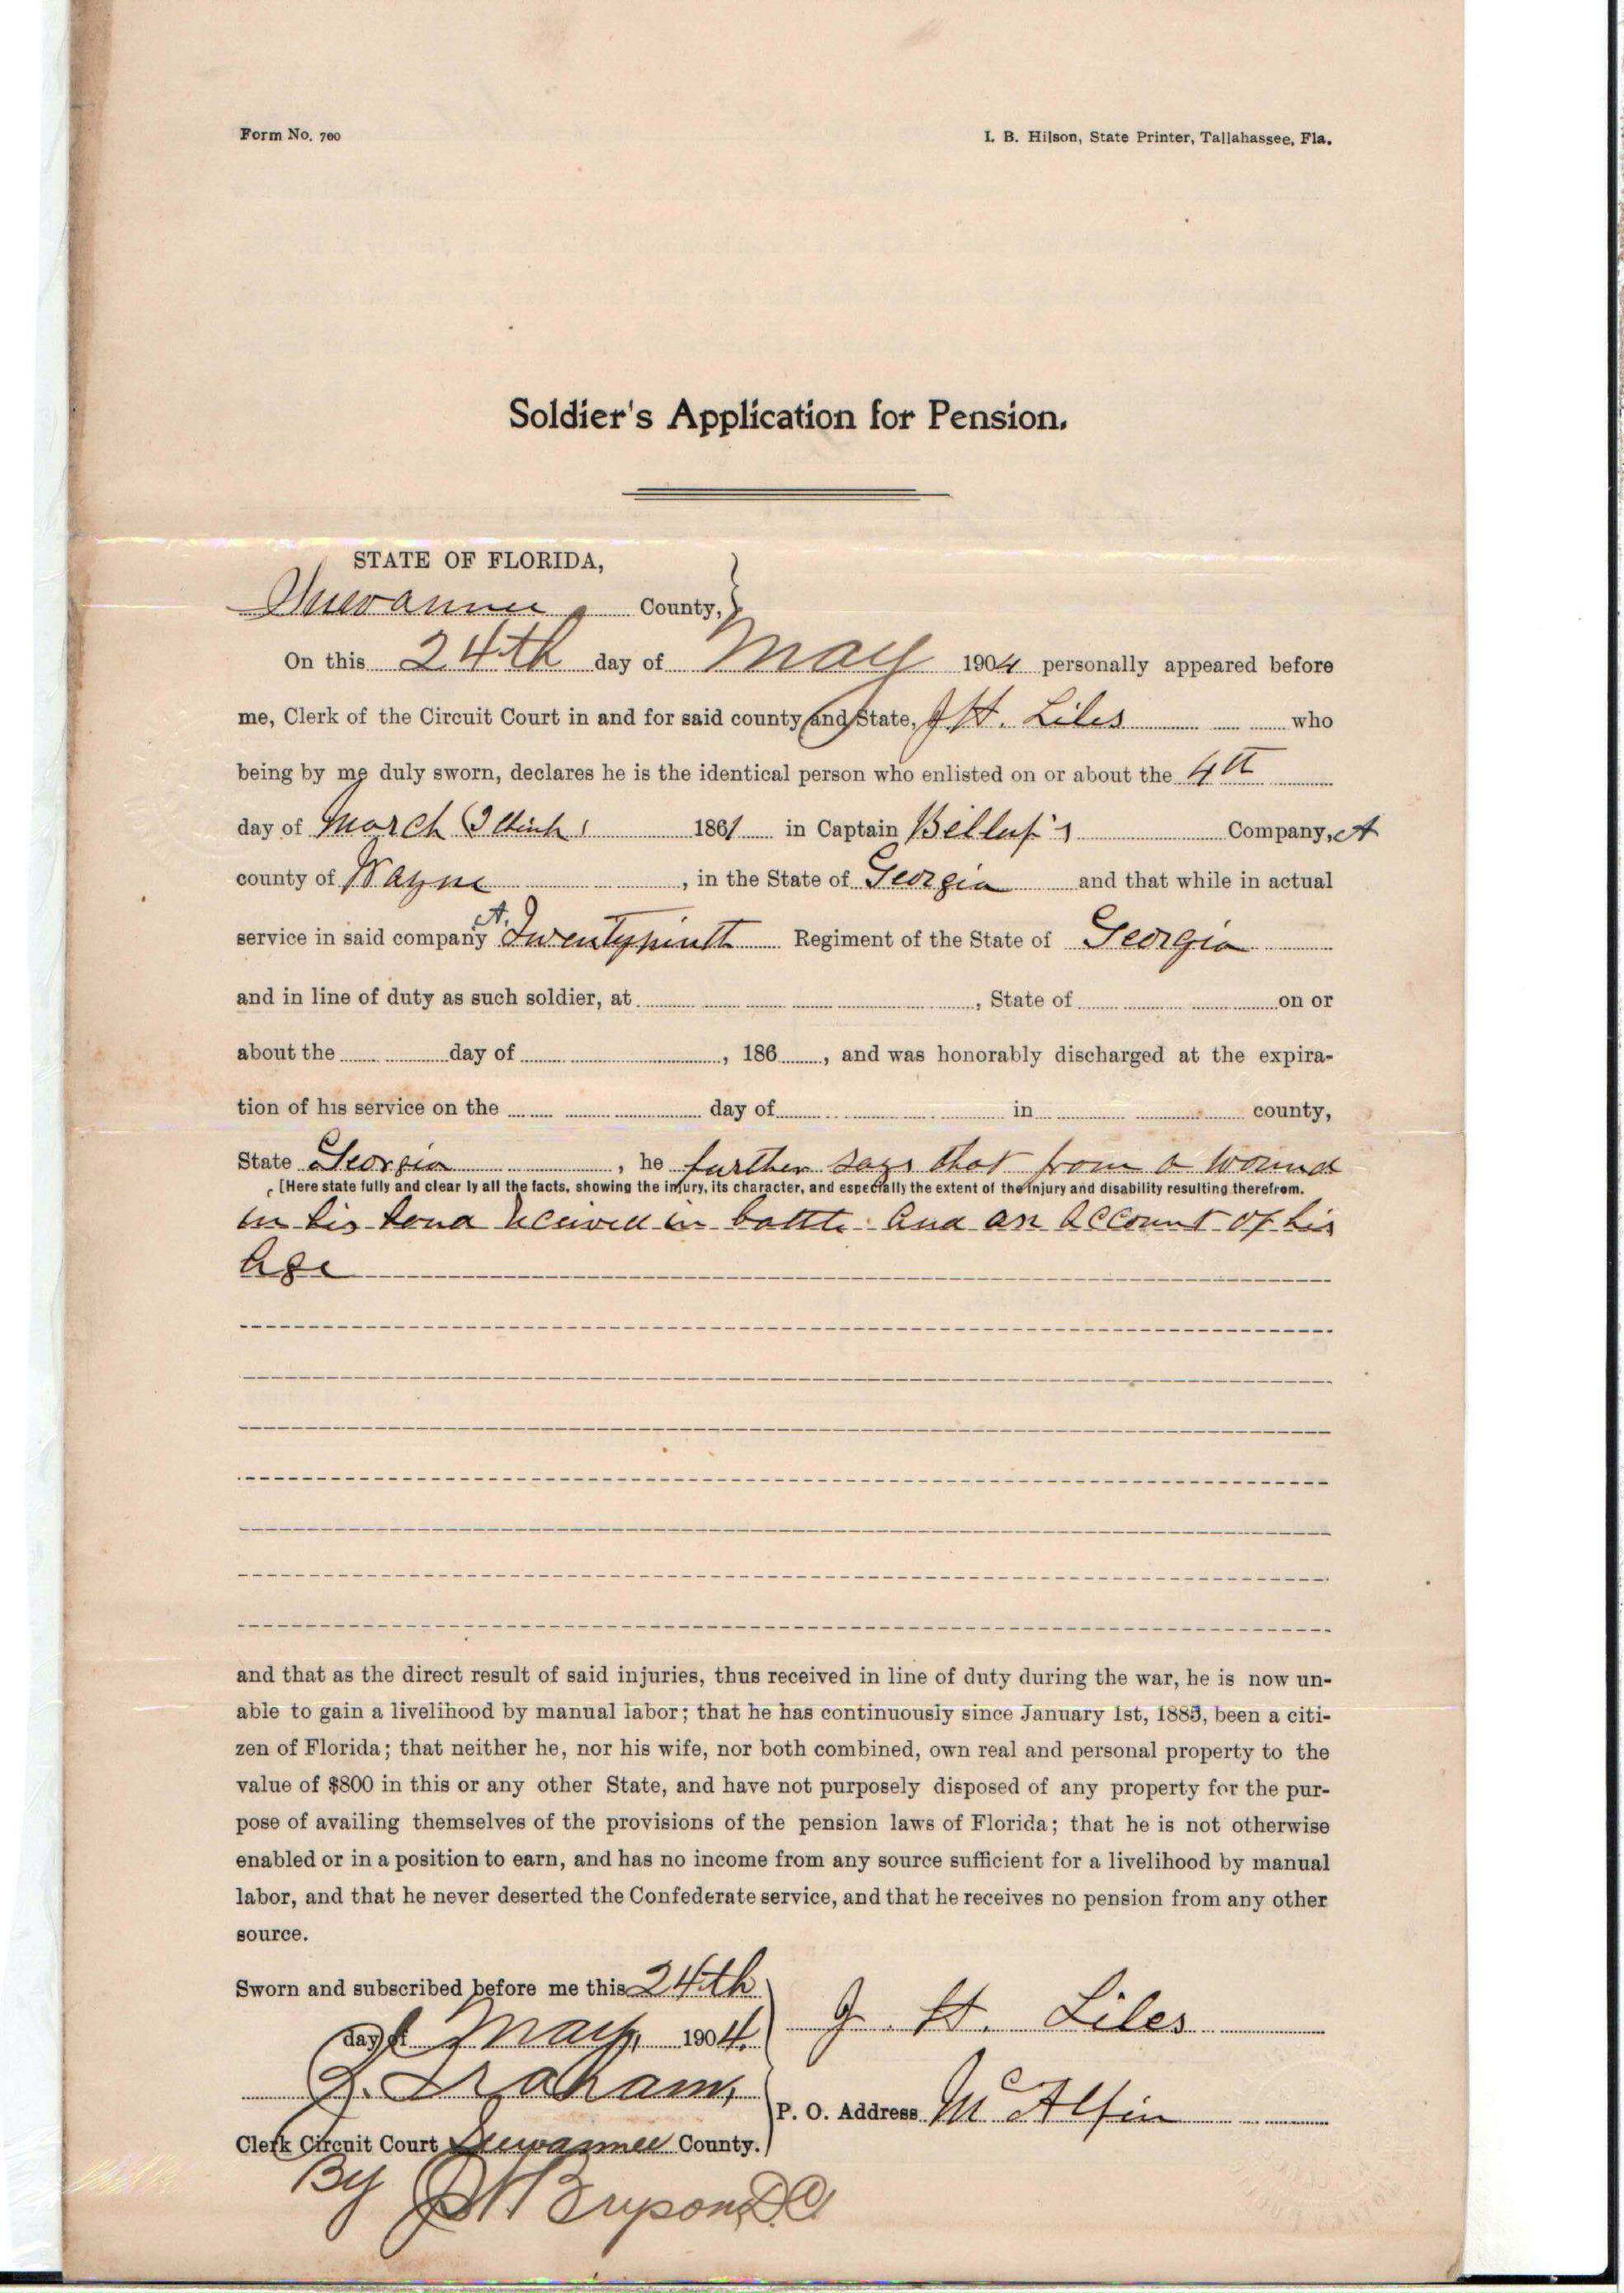 Form No. 700
I. B. Hilson, State Printer, Tallahassee, Fla.
Soldier's Application for Pension.
STATE OF FLORIDA,
Suwannee County,
On this 24th day of May 1904 personally appeared before
me, Clerk of the Circuit Court in and for said county and State, J H. Liles who
being by me duly sworn, declares he is the identical person who enlisted on or about the 4th
day of March I think 1861 in Captain Billup's Company, A
county of Wayne, in the State of Georgia and that while in actual
service in said company A. Twentyninth Regiment of the State of Georgia
and in line of duty as such soldier, at , State of on or
about the day of , 186 , and was honorably discharged at the expira-
tion of his service on the day of in county,
State Georgia , he further says that from a wound
[Here state fully and clear ly all the facts, showing the injury, its character, and especially the extent of the injury and disability resulting therefrom.
in his hand received in battle and on account of his
age
and that as the direct result of said injuries, thus received in line of duty during the war, he is now un-
able to gain a livelihood by manual labor; that he has continuously since January 1st, 1885, been a citi-
zen of Florida; that neither he, nor his wife, nor both combined, own real and personal property to the
value of $800 in this or any other State, and have not purposely disposed of any property for the pur-
pose of availing themselves of the provisions of the pension laws of Florida; that he is not otherwise
enabled or in a position to earn, and has no income from any source sufficient for a livelihood by manual
labor, and that he never deserted the Confederate service, and that he receives no pension from any other
source.
Sworn and subscribed before me this 24th
day of May, 1904.
J. H. Liles
Graham,
P. O. Address McAlpin
Clerk Circuit Court Suwannee County.
By Bryson D.C.